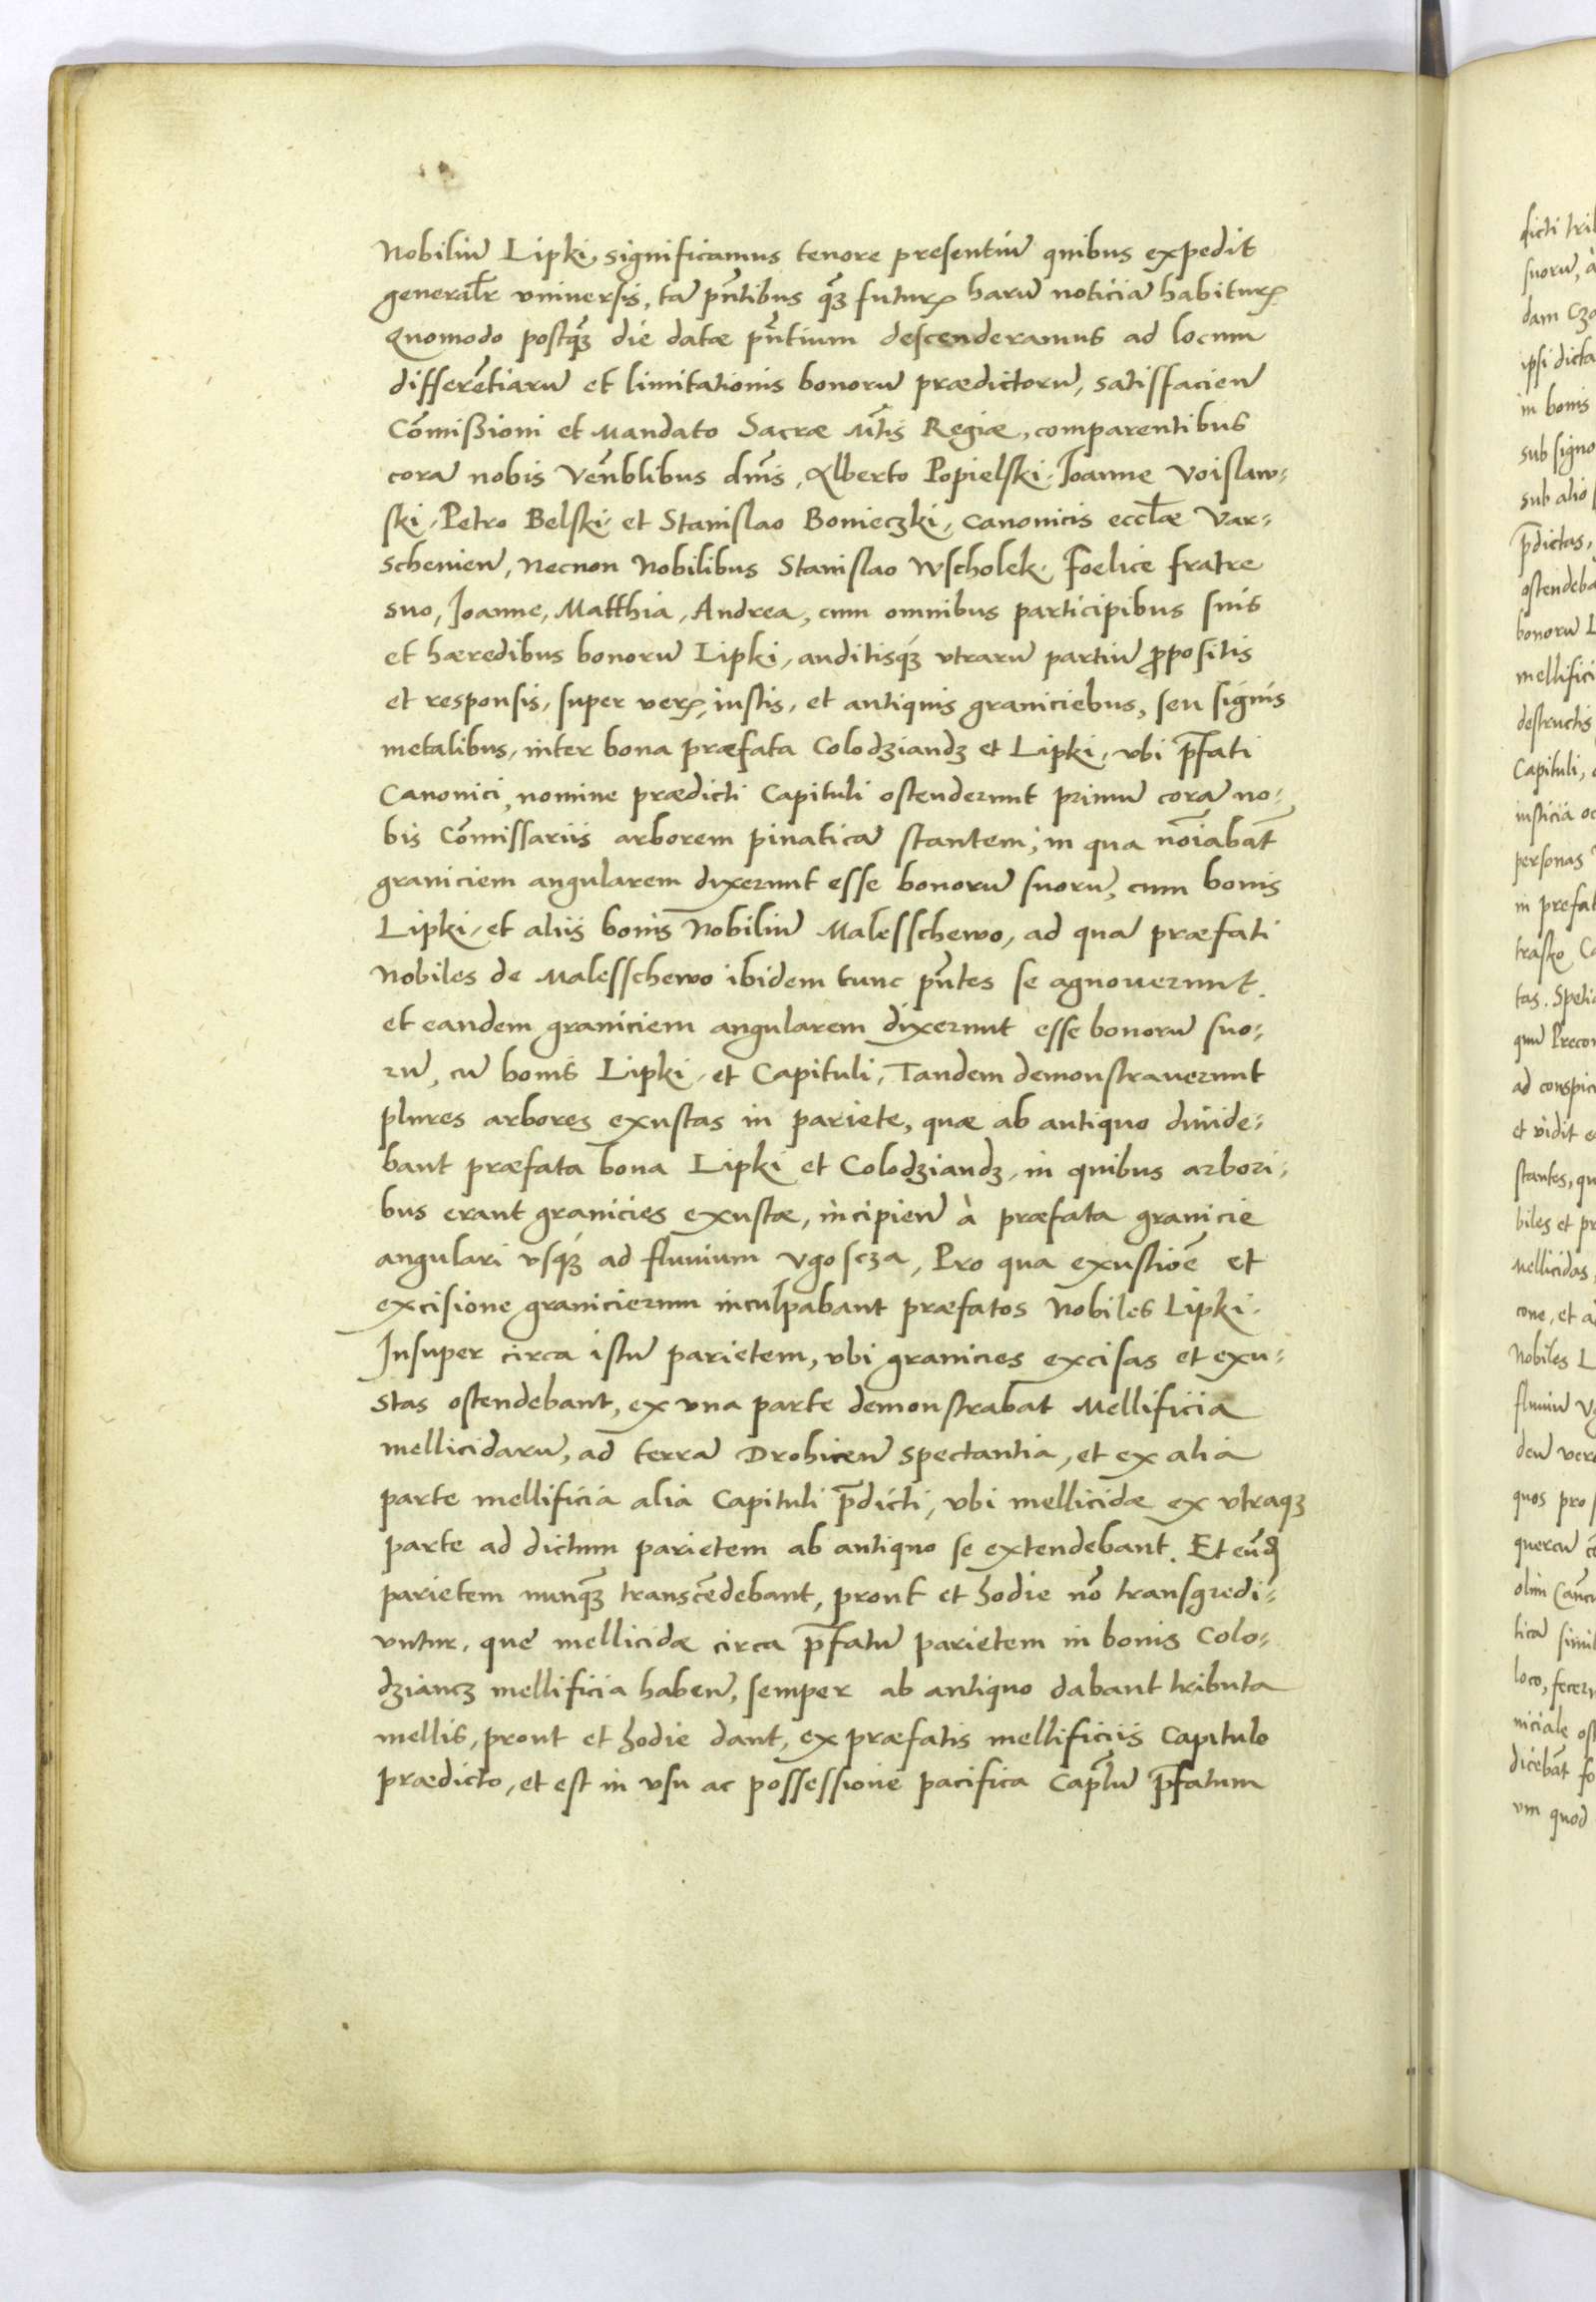 Nobiliũ Lipki, significamus tenore presentiũ quibus expedit
generalr̃ vniuersis, tã pñtibus qȝ futurꝭ harũ noticiã habiturꝭ
Quomodo postqȝ die datæ pñtium descenderamus ad locum
differẽtiarũ et limitationis bonorũ prædictorũ, satisfacieñ
Cõmißioni et Mandato Sacræ Mt̃is Regiæ, comparentibus
corã nobis Veñblibus dnĩs, Alberto Popielski, Joanne Voislaw-
ski, Petro Belski, et Stanislao Bonieczki, Canonicis eccl̃æ Var-
schenieñ, Necnon Nobilibus Stanislao Wscholek, Foelice fratre
suo, Joanne, Matthia, Andrea, cum omnibus participibus suis
et hæredibus bonorũ Lipki, auditisqȝ vtrarũ partiũ ꝓpositis
et responsis, super verꝭ, iustis, et antiquis graniciebus, seu signis
metalibus, inter bona præfata Colodziandz et Lipki, vbi p̃fati
Canonici, nomine prædicti Capituli ostenderunt primũ corã no-
bis Cõmissariis arborem pinaticã stantem, in qua nõiabãt
graniciem angularem dixerunt esse bonorũ suorũ, cum bonis
Lipki, et aliis bonis Nobiliũ Malesschewo, ad quã præfati
Nobiles de Malesschewo ibidem tunc pñtes se agnouerunt.
et eandem graniciem angularem dixerunt esse bonorũ suo-
rũ, cũ bonis Lipki, et Capituli, Tandem demonstrauerunt
plures arbores exustas in pariete, quæ ab antiquo diuide-
bant præfata bona Lipki et Colodziandz, in quibus arbori-
bus erant granicies exustæ, incipieñ à præfata granicie
angulari vsqȝ ad fluuium Vgoscza, Pro qua exustiõe et
excisione granicierum inculpabant præfatos Nobiles Lipki.
Insuper circa istũ parietem, vbi granicies excisas et exu-
stas ostendebant, ex vna parte demonstrabat Mellificia
mellicidarũ, ad terrã Drohiceñ spectantia, et ex alia
parte mellificia alia Capituli p̃dicti, vbi mellicidæ ex vtraqȝ
parte ad dictum parietem ab antiquo se extendebant. Et eũd
parietem nunqȝ transcẽdebant, prout et hodie nõ transgredi-
untur, que mellicidæ circa p̃fatũ parietem in bonis Colo-
dziancz mellificia habeñ, semper ab antiquo dabant tributa
mellis, prout et hodie dant, ex præfatis mellificiis Capitulo
prædicto, et est in vsu ac possessione pacifica Capl̃ũ p̃fatum
dam
in bonis
sub signo
sub alio
p̃dictas,
bonorũ
destructis
Capituli,
personas
et vidit
stantes,
biles et
Nobiles L
quos pro
loco,
vm quod